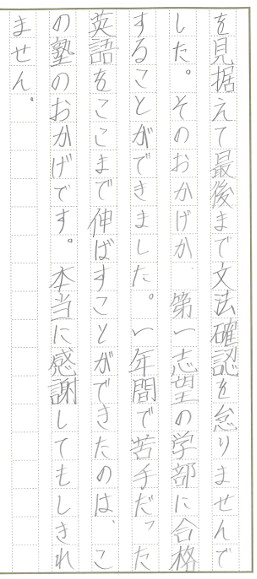 を見据えて最後まで文法確認を怠りませんで
した。そのおかげか 第一志望の学部に合格
することができました。一年間で苦手だった
英語をここまで伸ばすことができたのは、こ
の塾のおかげです。本当に感謝してもしきれ
ません。